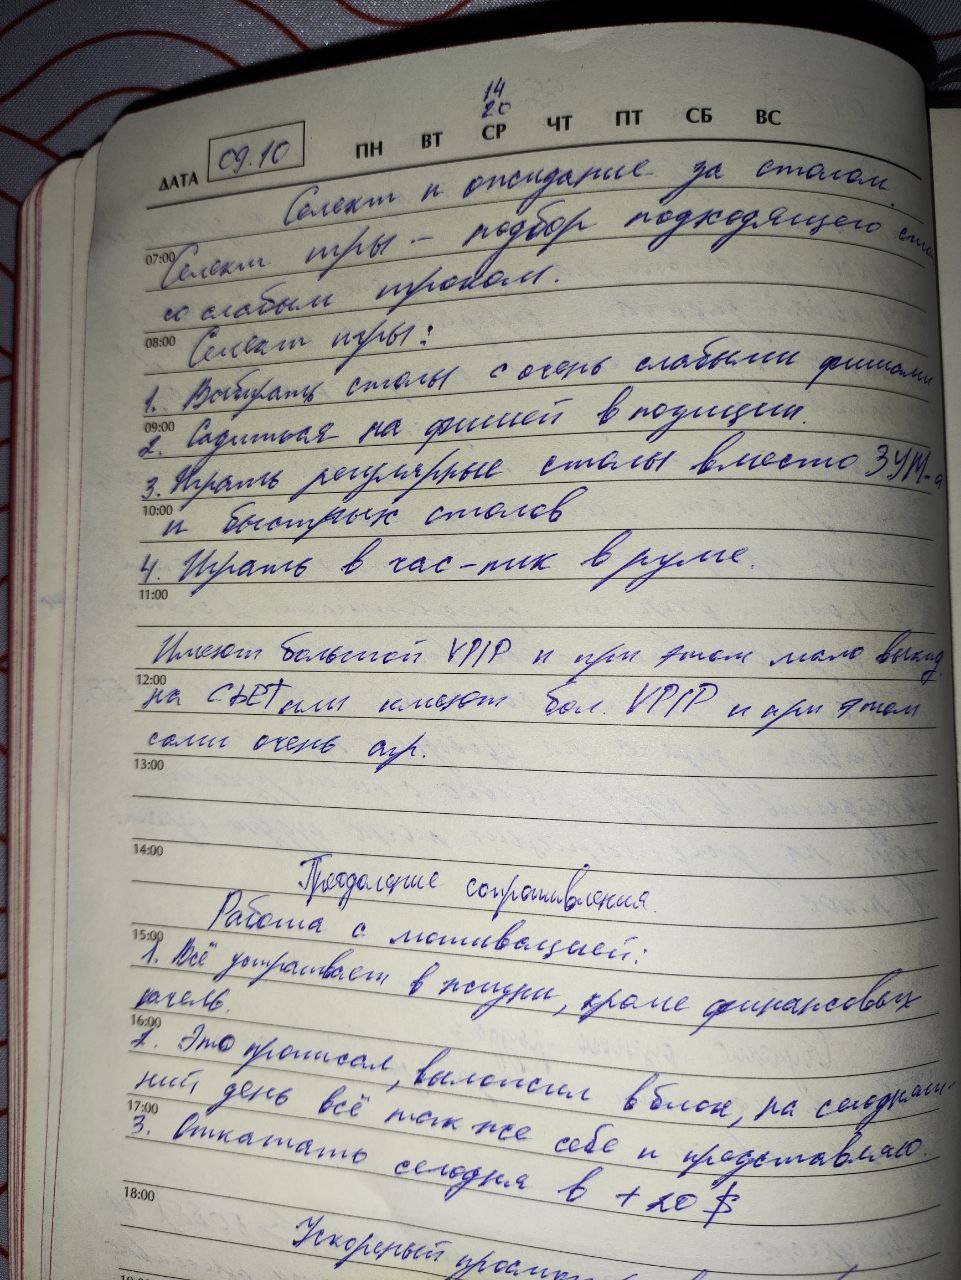 14
20
ДАТА 09.10 ПН ВТ СР ЧТ ПТ СБ ВС
Селект и ожидание за столом.
07:00
Селект игры – подбор подходящего
со слабым игроком.
08:00
Селект игры:
1. Выбирать столы с очень слабыми фишами
09:00
2. Садиться на фишей в позиции.
3. Играть регулярные столы вместо ЗУМ-а
10:00
и быстрых столов
4. Играть в час-пик в руме.
11:00
Имеют большой VPIP и при этом мало выход
12:00
на СБЕТ или имеют бол. VPIP и при этом
сами очень агр.
13:00
14:00
Преодоление сопротивления.
Работа с мотивацией:
15:00
1. Всё устраивает в жизни, кроме финансовых
16:00
2. Это прописал, выложил в блок, на сегодняш-
ний день всё так же себе и представляю.
17:00
3. Откатать сегодня в +20$
18:00
Ускореный